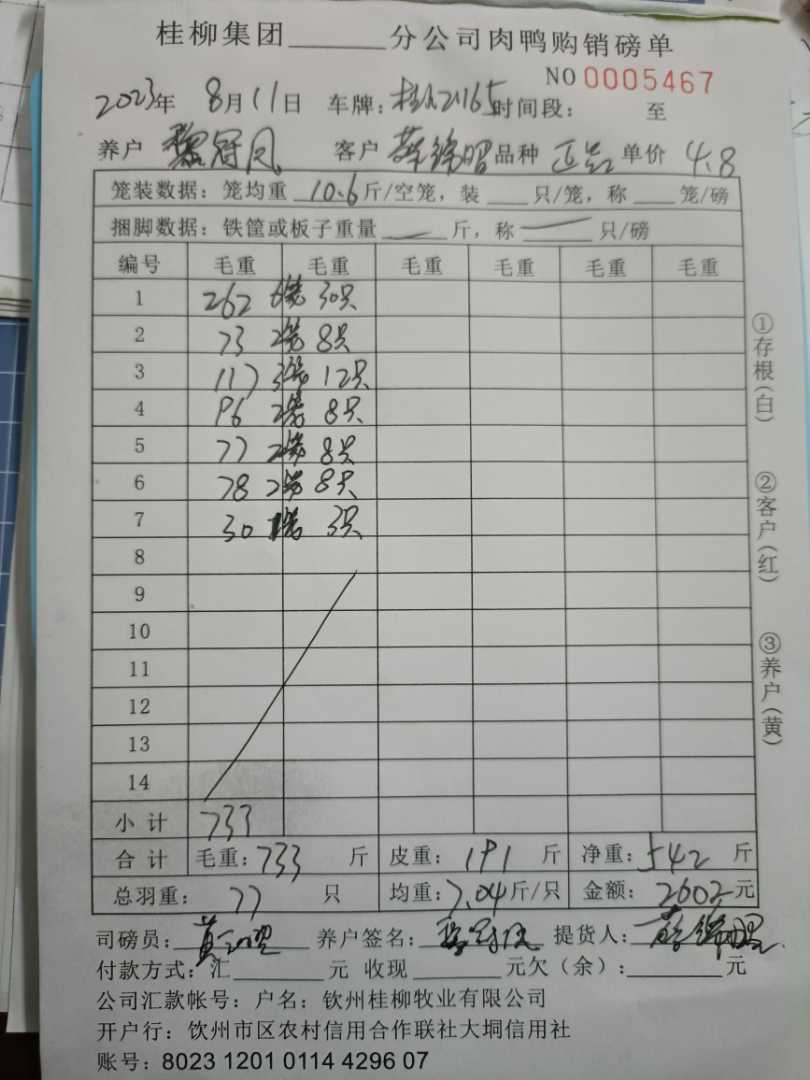 桂柳集团______分公司肉鸭购销磅单
NO 0005467
2023年 8月11日 车牌: 21165 时间段: 至
养户 黎冠凤 客户 品种 单价 4.8
笼装数据: 笼均重 10.6 斤/空笼, 装 ___ 只/笼, 称 ___ 笼/磅
捆脚数据: 铁筐或板子重量 ___ 斤, 称 ___ 只/磅
编号 毛重 毛重 毛重 毛重 毛重 毛重
1 262 6笼 30只
2 73 2笼 8只
3 117 3笼 12只
4 96 2笼 8只
5 77 2笼 8只
6 78 2笼 8只
7 30 1笼 3只
8
9
10
11
12
13
14
小计 733
合计 毛重: 733 斤 皮重: 191 斤 净重: 542 斤
总羽重: 77 只 均重: 7.04 斤/只 金额: 2602 元
司磅员: 养户签名: 黎冠凤 提货人:
付款方式: 汇______元 收现______元欠(余):______元
公司汇款帐号: 户名: 钦州桂柳牧业有限公司
开户行: 钦州市区农村信用合作联社大垌信用社
账号: 8023 1201 0114 4296 07
①存根(白)
②客户(红)
③养户(黄)